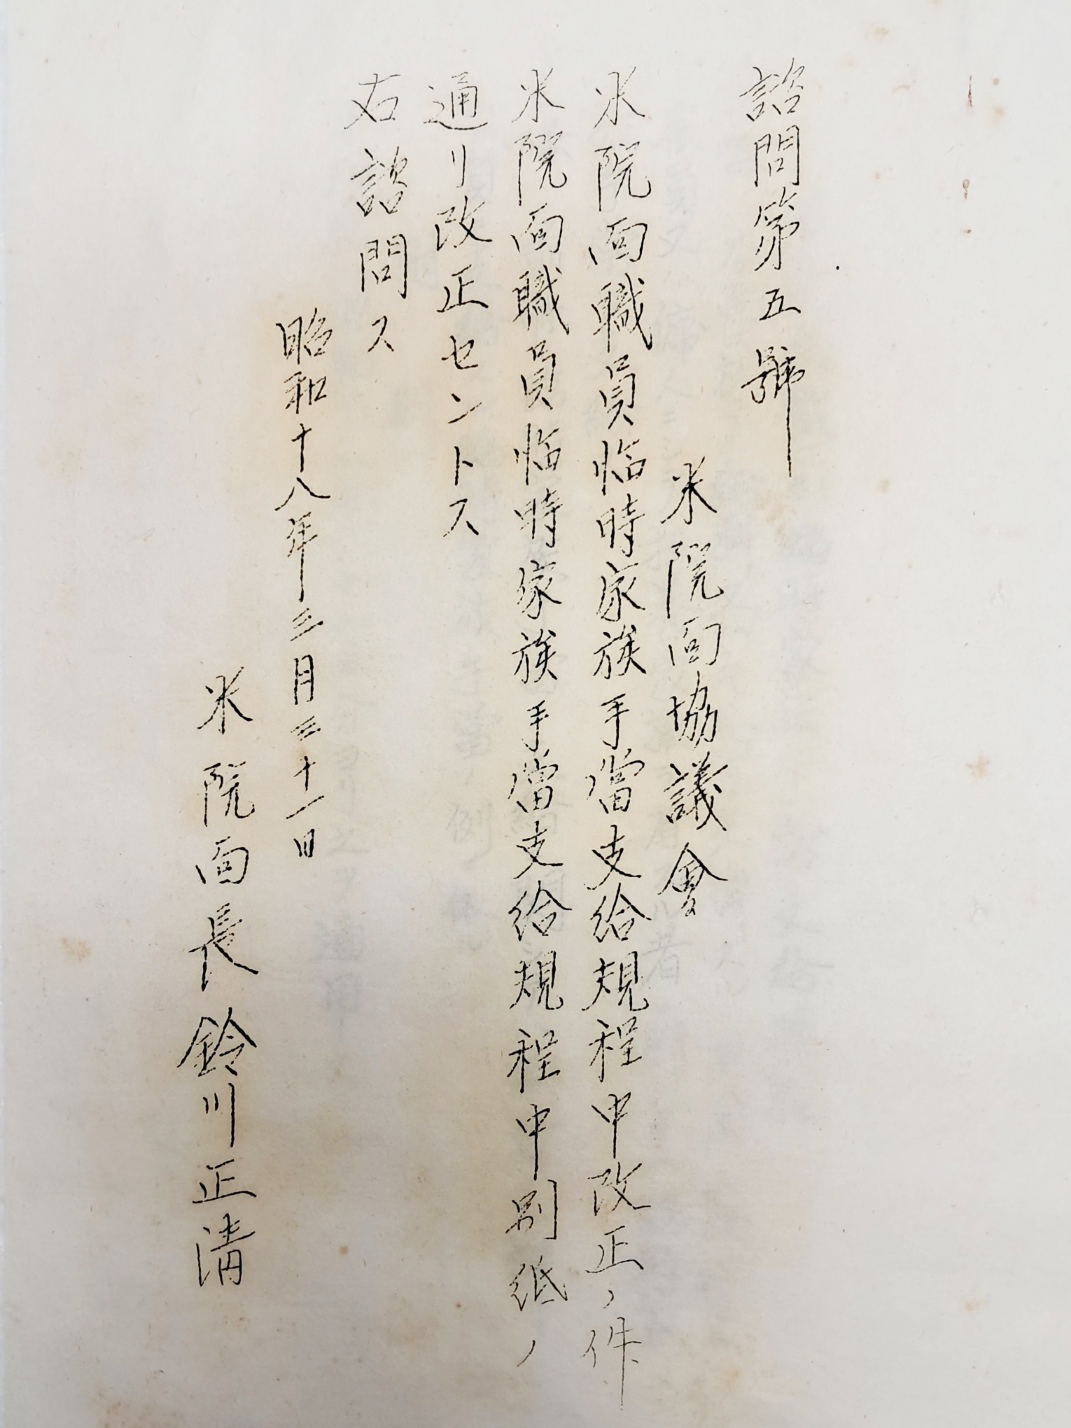 諮問第五號
米院面協議會
米院面職員臨時家族手當支給規程中改正ノ件
米院面職員臨時家族手當支給規程中別紙ノ
通リ改正セントス
右諮問ス
昭和十八年三月三十一日
米院面長 鈴川正溝